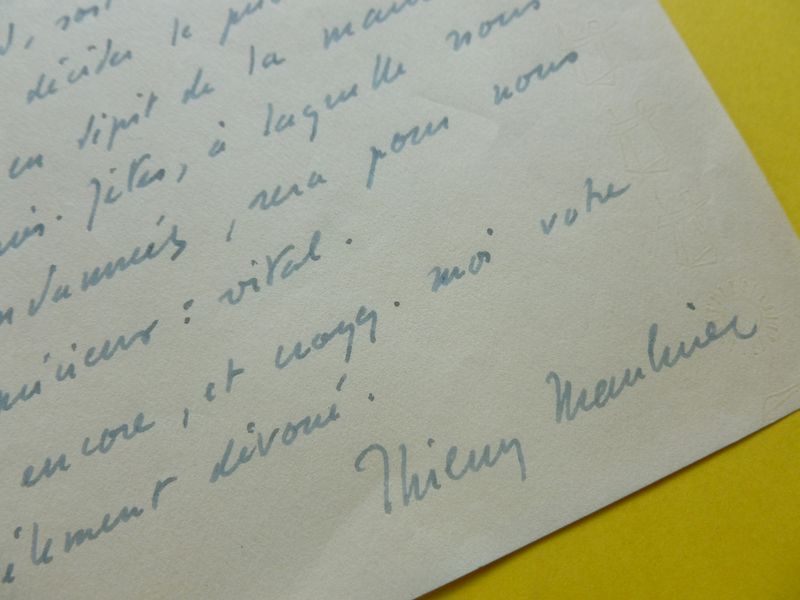 soit
décider le
en dépit de la
jetés, à laquelle nous
damnés, sera pour nous
: vital.
encore, et croyez-moi votre
dévoué.
Thierry Maulnier